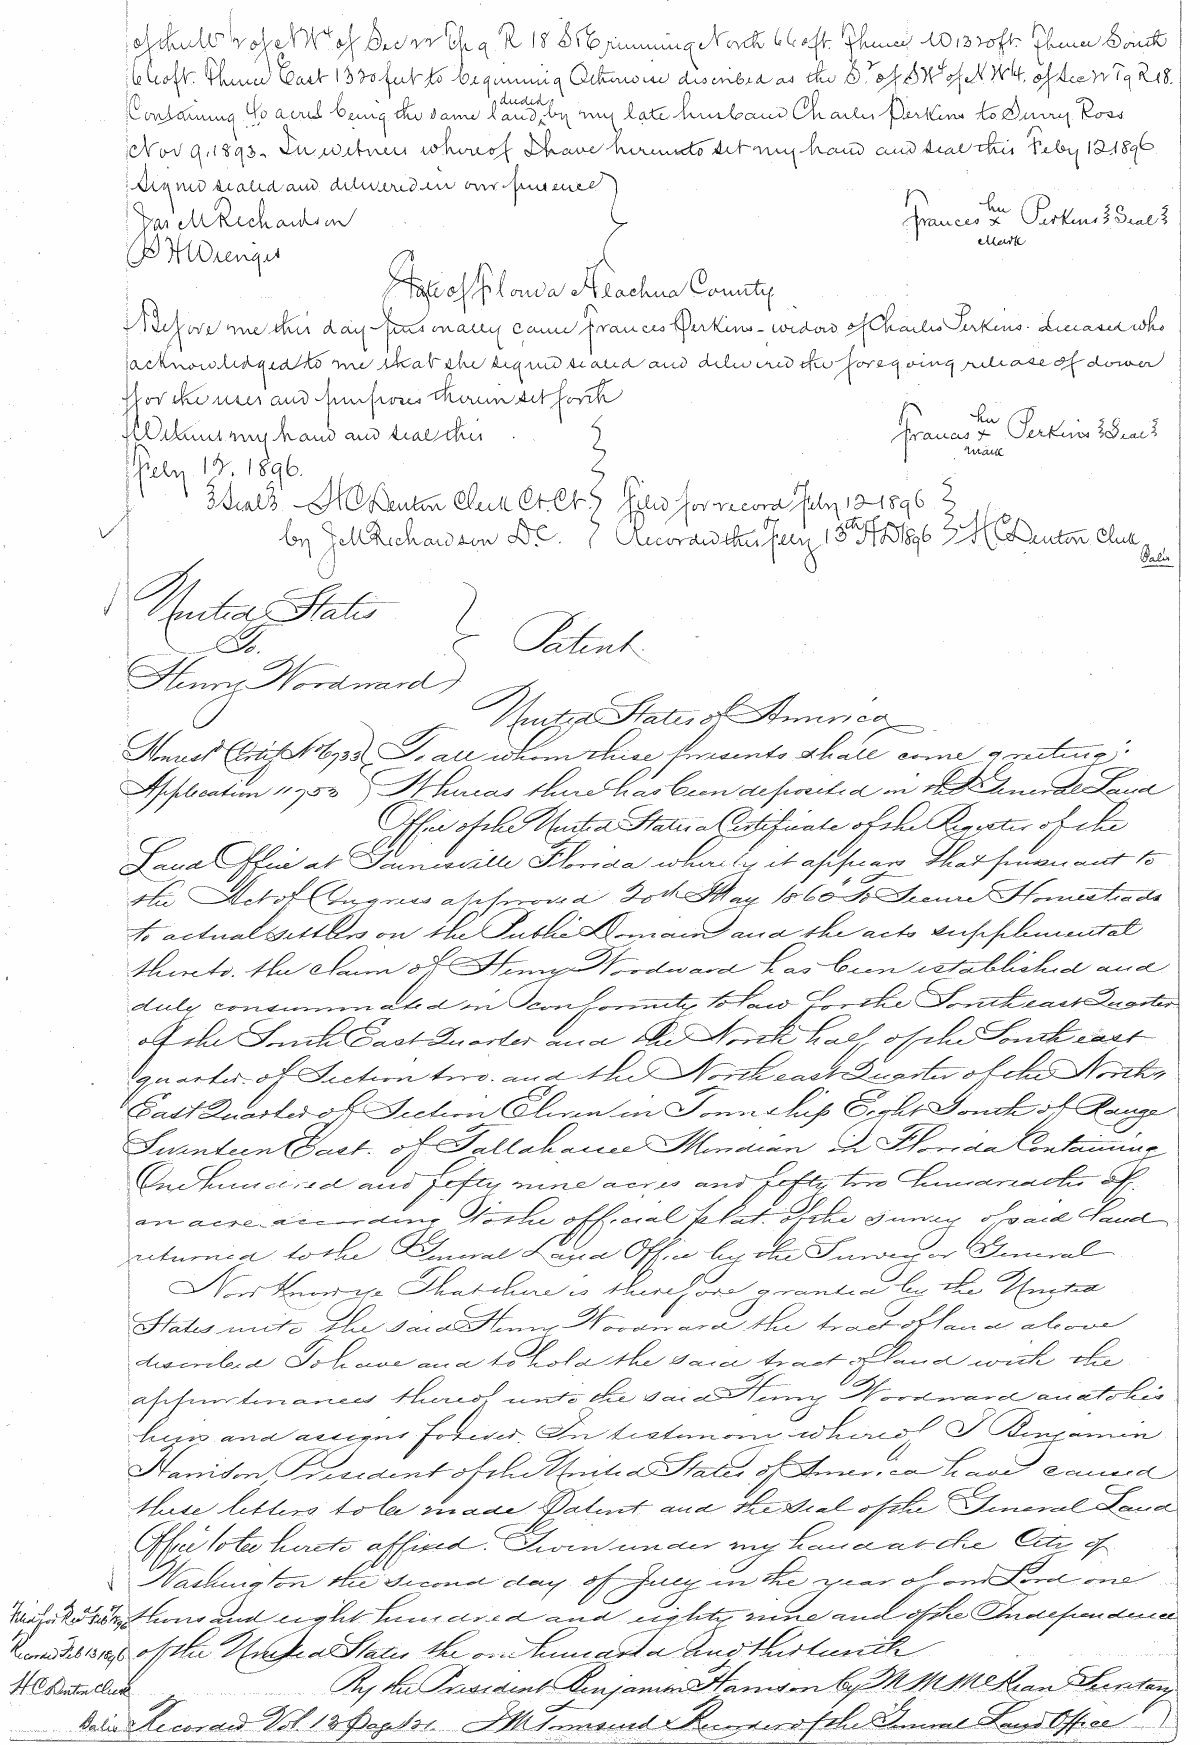 of Sec 22 Tp 9 R 18 S & E running North 660 ft. Thence W 1320 ft. Thence South
660 ft. Thence East 1320 feet to beginning Otherwise discribed as the S½ of SW¼ of NW4. of Sec 22 T 9 R 18.
Containing 20 acres being the same land deeded by my late husband Charles Perkins to Ross
Nov 9, 1893. In witness whereof I have hereunto set my hand and seal this Feby 12 1896
Signed sealed and delivered in our presence
Jas M Richardson
Frances her x mark Perkins {Seal}
S H Wienges
State of Florida Alachua County
Before me this day personally came Frances Perkins - widow of Charles Perkins. deceased who
acknowledged to me that she signed sealed and delivered the foregoing release of dower
for the uses and purposes therein set forth
Witness my hand and seal this
Frances her x mark Perkins {Seal}
Feby 12. 1896.
{Seal} H C Denton Clerk Ct. Ct. Filed for record Feby 12 1896
by J M Richardson D.C. Recorded this Feby 13th AD 1896 H C Denton Clerk
United States
To.
Patent.
Henry Woodward
United States of America
Homest Certif No 6733 To all whom these presents shall come greeting:
Application 11753 Whereas there has been deposited in the General Land
Office of the United States a Certificate of the Register of the
Land Office at Gainesville Florida whereby it appears that pursuant to
the Act of Congress approved 20th May 186 To Secure Homesteads
to actual settlers on the Public Domain and the acts supplemental
thereto. the claim of Henry Woodward has been established and
duly consummated in conformity to law for the South east Quarter
of the South East Quarter and the North half of the South east
quarter. of Section two. and the North east Quarter of the North
East Quarter of Section Eleven in Township Eight South of Range
Seventeen East. of Tallahassee Meridian in Florida Containing
One hundred and fifty nine acres and fifty two hundredths of
an acre according to the official plat. of the survey of said Land
returned to the General Land Office by the Surveyor General
Now Know ye That there is therefore granted by the United
States unto the said Henry Woodward the tract of land above
described To have and to hold the said tract of land with the
appurtenances thereof unto the said Henry Woodward and to his
heirs and assigns forever. In testimony whereof I Benjamin
Harrison President of the United States of America have caused
these letters to be made Patent and the seal of the General Land
Office to be hereto affixed. Given under my hand at the City of
Washington the second day of July in the year of our Lord one
Filed for Rec Feb thousand eight hundred and eighty nine and of the Independence
Recorded Feb 13 1896 of the United States the one hundred and thirteenth
H C Denton Clerk By the President Benjamin Harrison by M M McKean Secretary
Recorded Vol. 13 Page J M Townsend Recorder of the General Land Office